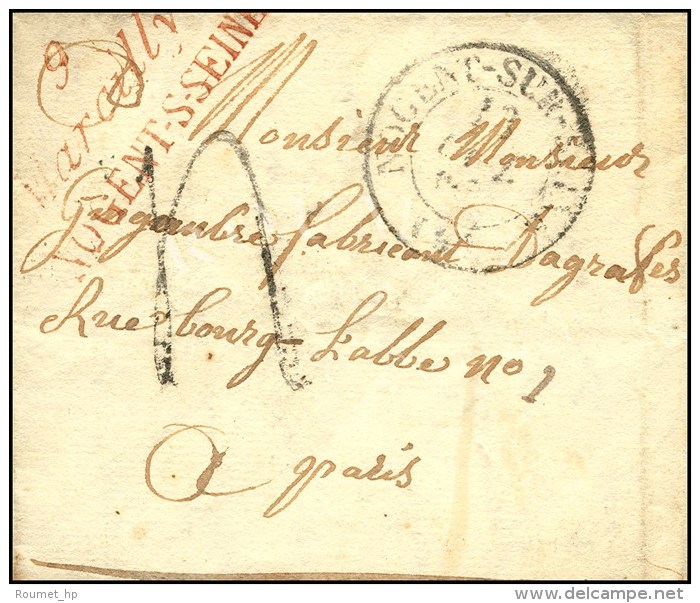 9
Marcilly
NOGENT-S-SEINE
NOGENT-SUR-S
Monsieur Monsieur
fabricant Dagrafes
Rue bourg-Labbé no 1
a paris
Roumet_hp
delcampe.net